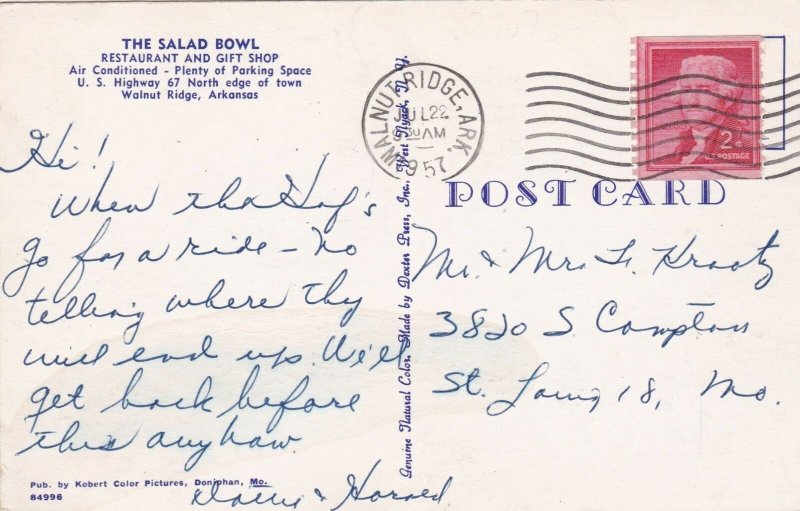 THE SALAD BOWL
RESTAURANT AND GIFT SHOP
Air Conditioned - Plenty of Parking Space
U. S. Highway 67 North edge of town
Walnut Ridge, Arkansas
Hi!
When tha Hof's
go for a ride - no
telling where thy
will end up. We'll
get back before
this anyhow.
& Harold
Pub. by Kobert Color Pictures, Doniphan, Mo.
84996
Genuine Natural Color. Made by Dexter Press, Inc., West Nyack, N. Y.
WALNUT RIDGE, ARK.
JUL 22
30 AM
1957
2¢
U.S. POSTAGE
POST CARD
Mr. & Mrs.
3820 S Compton
St. Louis 18, Mo.